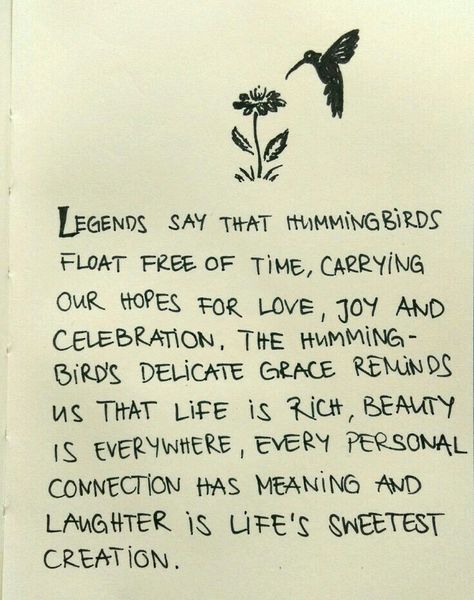 LEGENDS SAY THAT HUMMINGBIRDS
FLOAT FREE OF TIME, CARRYING
OUR HOPES FOR LOVE, JOY AND
CELEBRATION. THE HUMMING-
BIRD'S DELICATE GRACE REMINDS
US THAT LIFE IS RICH, BEAUTY
IS EVERYWHERE, EVERY PERSONAL
CONNECTION HAS MEANING AND
LAUGHTER IS LIFE'S SWEETEST
CREATION.